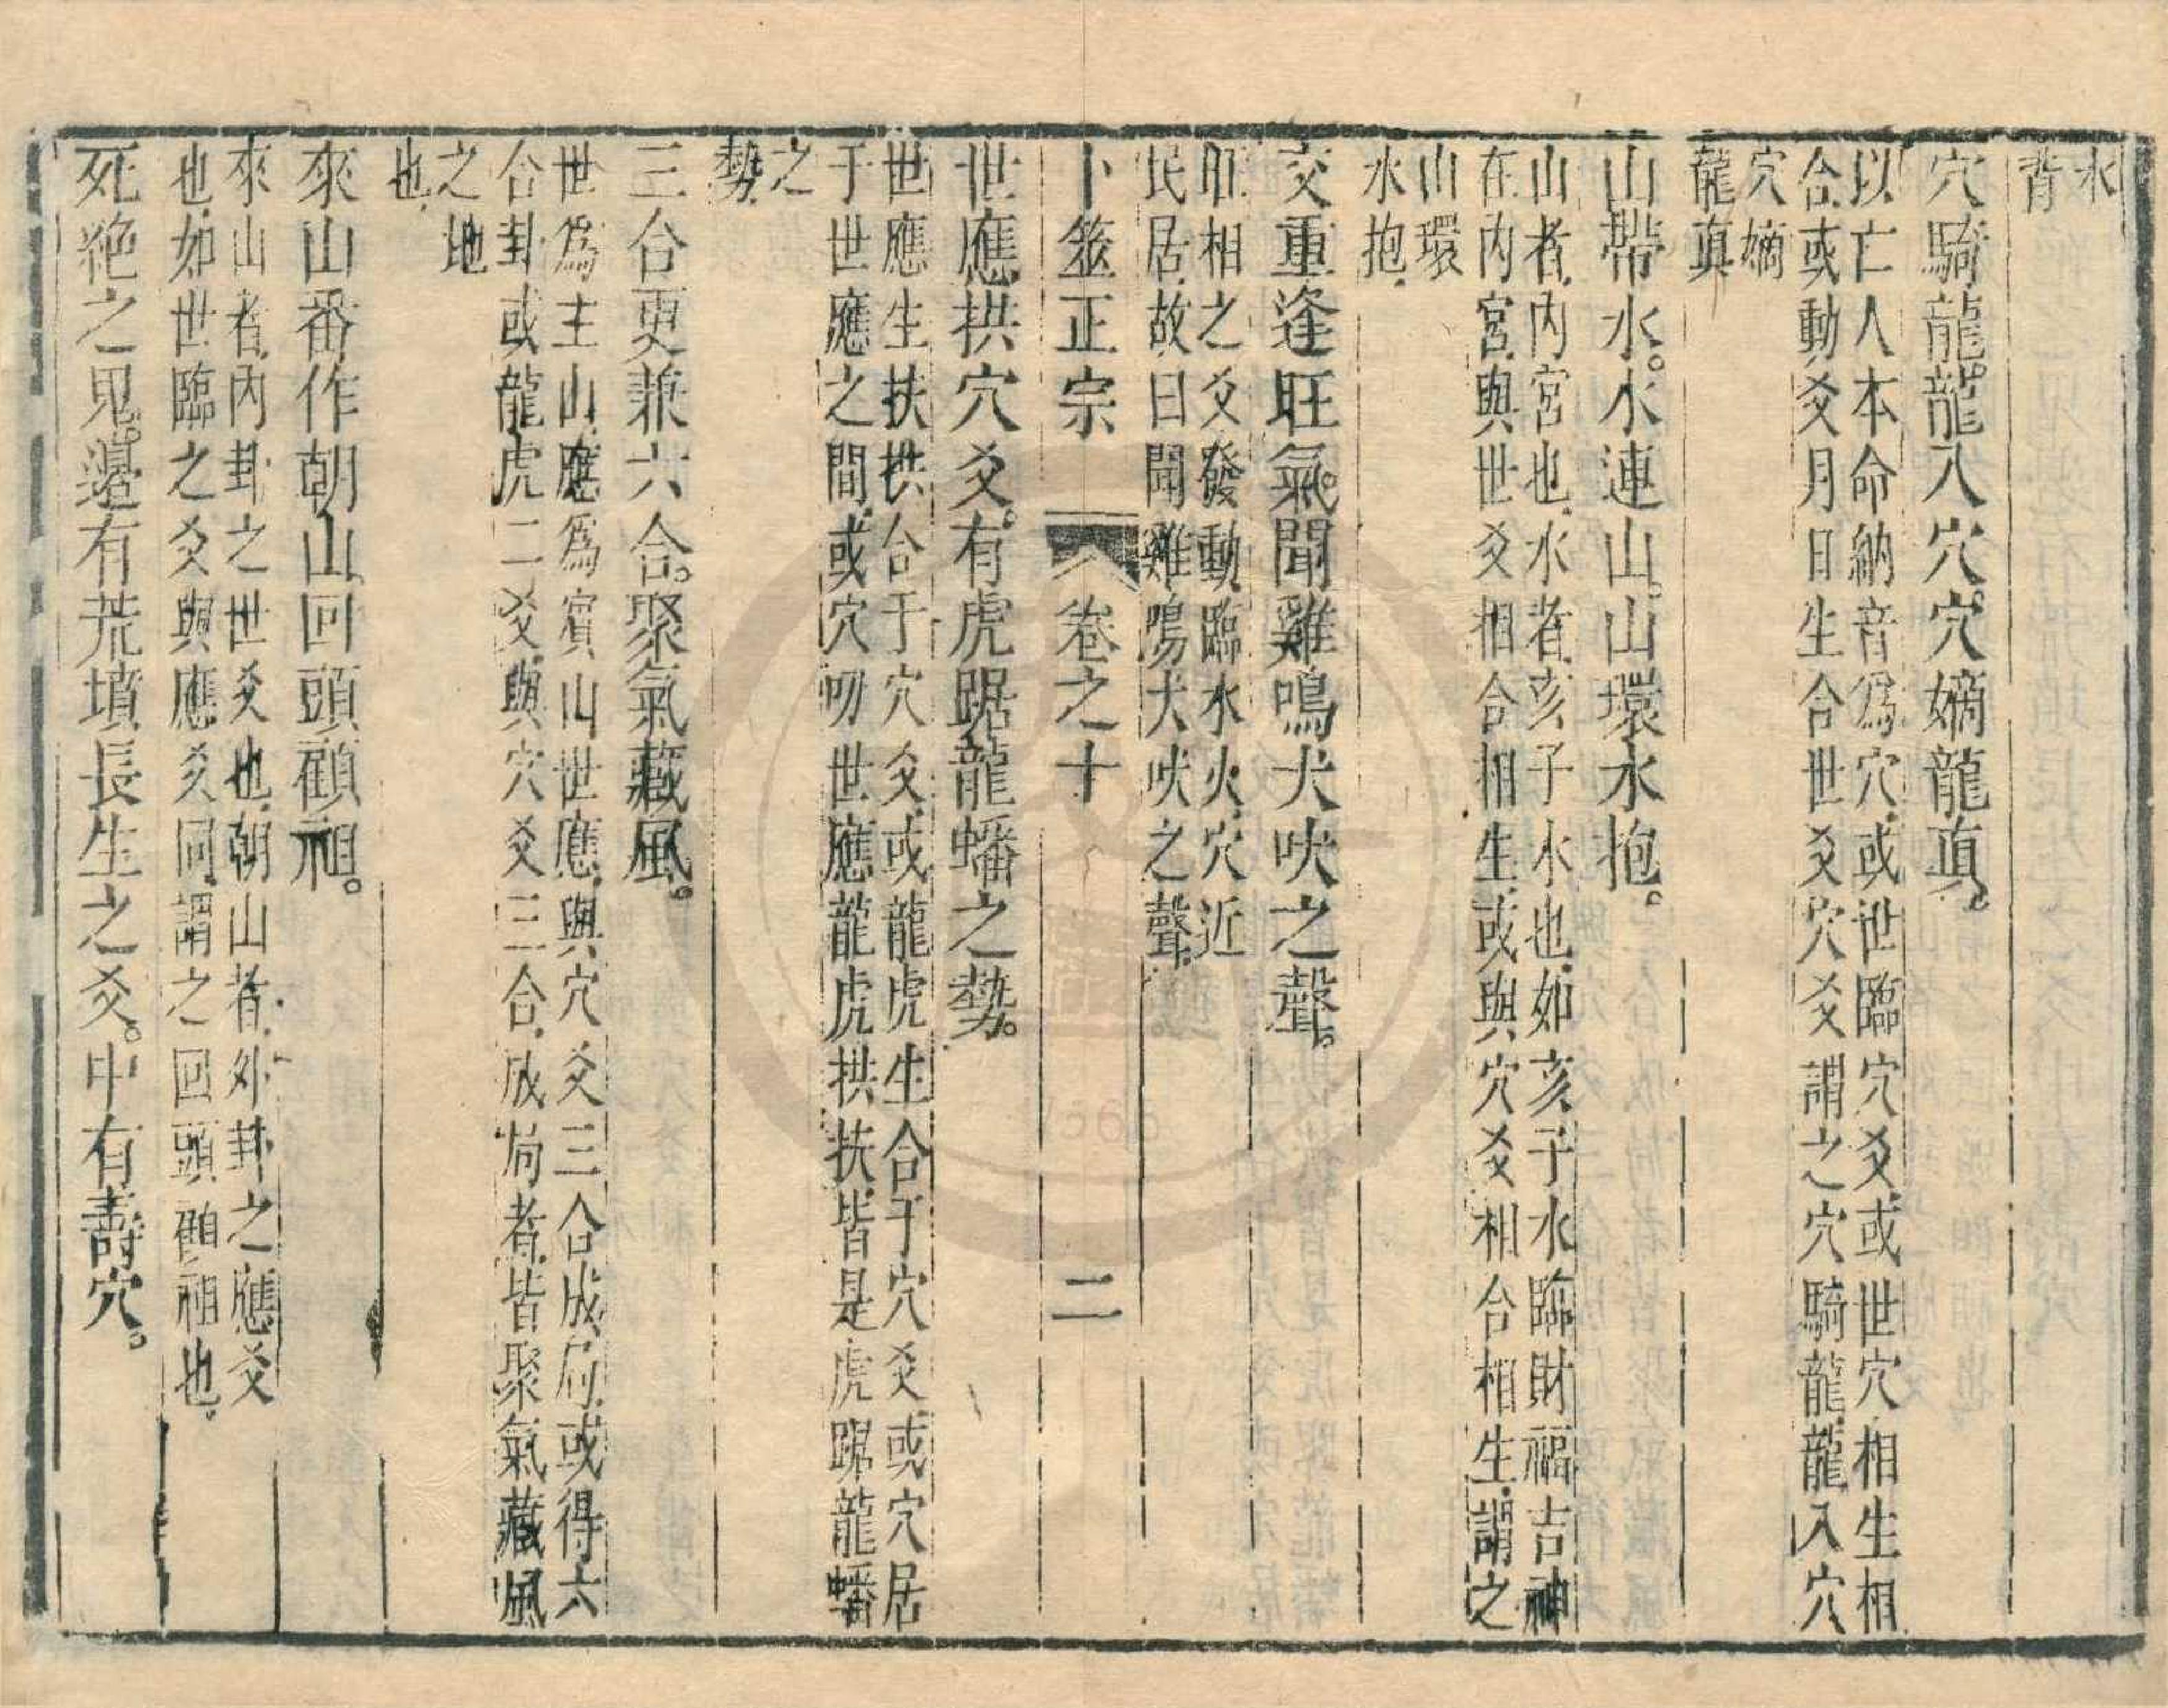 水
背
穴騎龍。龍入穴。穴嫡龍真。
以亡人本命納音爲穴或世臨穴爻或世穴相生相
合或動爻月日生合世爻穴爻謂之穴騎龍龍入穴
穴嫡
龍真
山帶水。水連山。山環水抱。
山者內宮也水者亥子水也如亥子水臨財福吉神
在內宮與世爻相合相生或與穴爻相合相生謂之
山環
水抱
交重逢旺氣。聞雞鳴犬吠之聲。
旺相之爻發動臨水火穴近
民居故曰聞雞鳴犬吠之聲
卜筮正宗 卷之十 二
世應拱穴爻。有虎踞龍蟠之勢。
世應生扶拱合于穴爻或龍虎生合于穴爻或穴居
于世應之間或穴吻世應龍虎拱扶皆是虎踞龍蟠
之
勢
三合更兼六合。聚氣藏風。
世爲主山應爲賓山世應與穴爻三合成局或得六
合卦或龍虎二爻與穴爻三合成局者皆聚氣藏風
之地
也
來山番作朝山。回頭顧祖。
來山者內卦之世爻也朝山者外卦之應爻
也如世臨之爻與應爻同謂之回頭顧祖也
死絕之鬼。邊有荒墳長生之爻。中有壽穴。